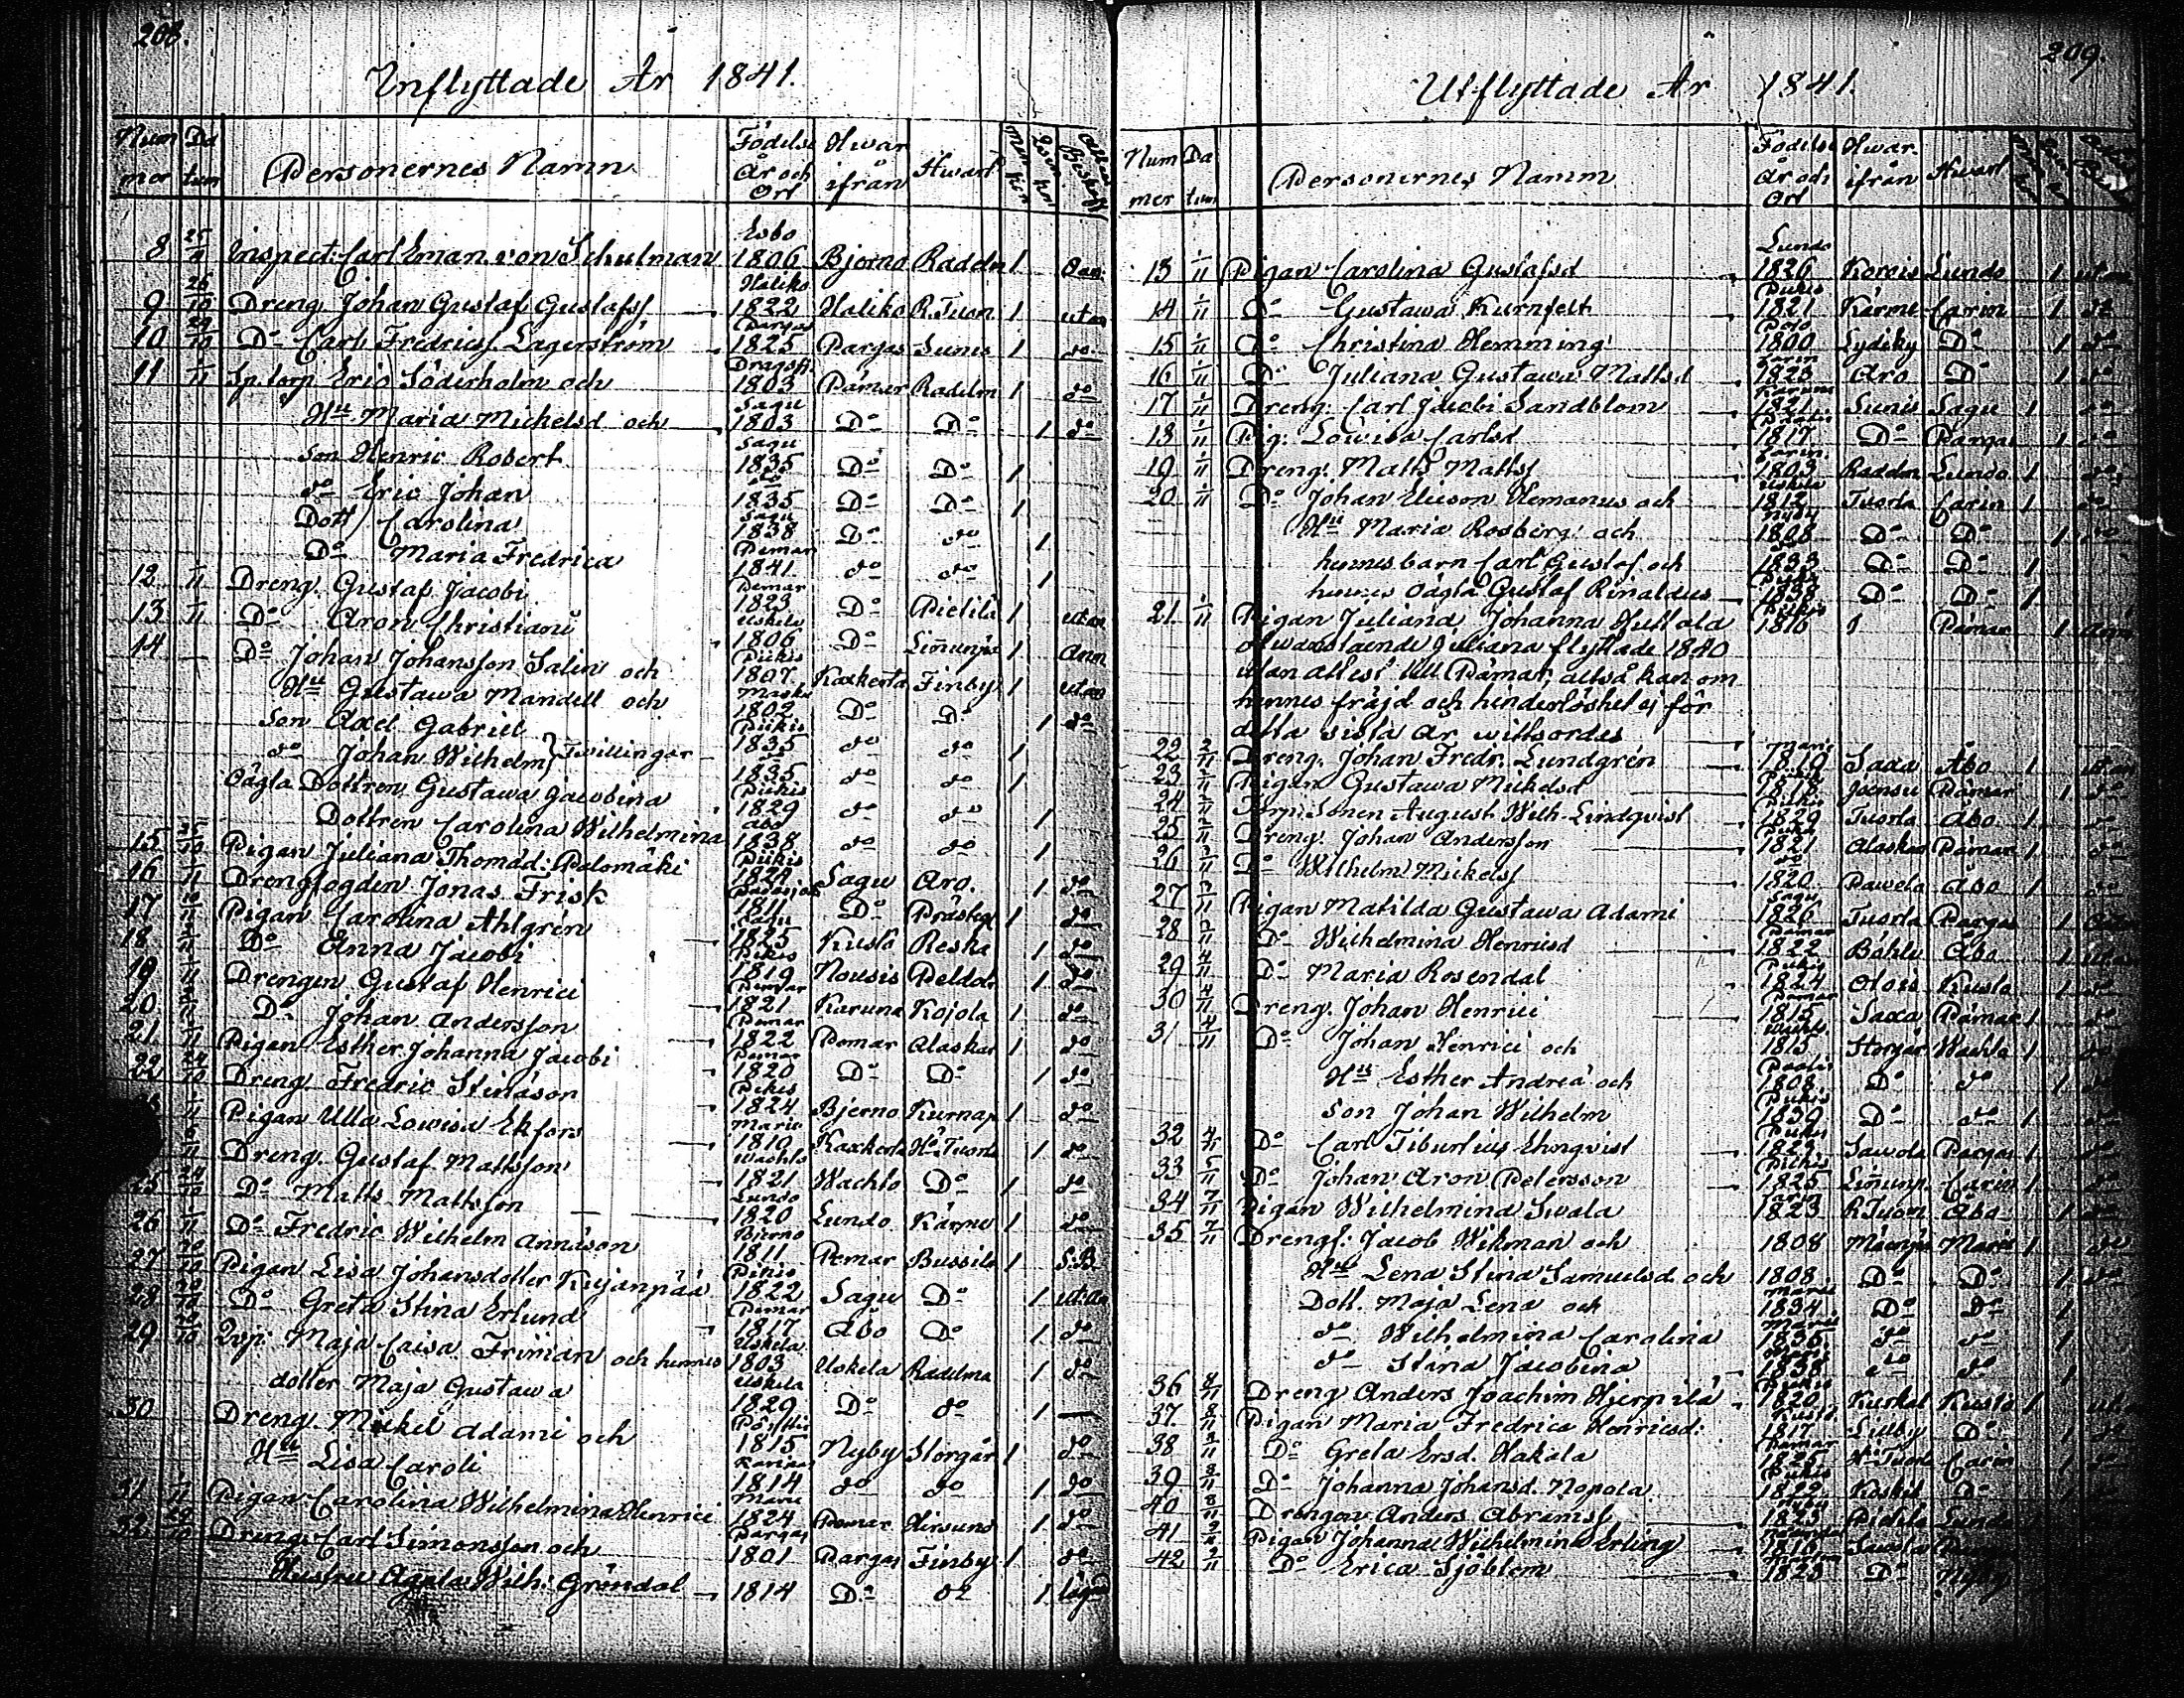 208.
Inflyttade År 1841.
Num mer
Da tum
Personernes Namn
Födelse År och Ort
Hwar ifrån
Hwart
8 25 Inspect: Carl Eman. von Schulman Esbo 1806 Bjerno Raddn 1
9 26/10 Dreng Johan Gustaf Gustafss Haliko 1822 Haliko R.Tuon 1 utan
10 29/10 Do Carl Fredricss Lagerström Pargas 1825 Pargas Sunis 1 do
11 1/11 Sp.torp Eric Söderholm och Dragsf. 1803 Pämar Raddn 1 do
Hu Maria Michelsd och Sagu 1803 Do Do 1 do
Son Henric Robert Sagu 1835 Do Do 1
do Eric Johan do 1835 Do Do 1
Dott Carolina Sagu 1838 Do do 1
Do Maria Fredrica Pemar 1841 do do 1
12 /11 Dreng Gustaf Jacobi Pemar 1823 Do Pietilä 1 utan
13 /11 Do Aron Christiani Uskela 1806 Do 1 Ann
14 Do Johan Johansson Salin och Pikis 1807 Kaxkerta Finby 1 utan
Hu Gustawa Mandell och Masku 1802 Do Do 1 do
Son Axel Gabriel Pikis 1835 do do 1
do Johan Wilhelm } Twillingar 1835 do do 1
Oägta Dottren Gustawa Jacobina Pikis 1829 do do 1
Dottren Carolina Wilhelmina Abo 1838 do do 1
15 Pigan Juliana Thomasd: Palomäki Pikis 1824 Sagu Aro. 1 do
16 /11 Drengfogden Jonas Frisk 1811 Do Prästgl 1 do
17 Pigan Carolina Ahlgrén Sagu 1825 Kustö Reska 1 do
18 Do Anna Jacobi Pikis 1819 Nousis Peldar 1 do
19 Drengen Gustaf Henrici Pemar 1821 Karuna Kojola 1 do
20 Do Johan Andersson Pemar 1822 Pemar Alaskar 1 do
21 Pigan Esther Johanna Jacobi Pemar 1820 Do Do 1 do
22 24/10 Dreng Fredric Stinäson Pikis 1824 Bjerno Kurnap 1 do
Pigan Ulla Lowisa Ekfors Marie 1819 Kaxkerta Ho Tuorla 1 do
Dreng. Gustaf Mattsson Wachto 1821 Wachto Do 1 do
25 24/10 Do Matts Mattsson Lundo 1820 Lundo Kärme 1 do
26 Do Fredric Wilhelm Annäson Bjerno 1811 Pemar Bussila 1 S.B.
27 Pigan Lisa Johansdotter Kujanpää Pikis 1822 Sagu Do 1 utan
28 Do Greta Stina Erlund Pemar 1817 Åbo Do 1 do
29 Maja Caisa Friman och hennes Uskela 1803 Uskela Raddma 1 do
dotter Maja Gustawa Uskela 1829 Do do 1
30 Dreng. Mickel Adami och 1815 Nyby Storgår 1 do
Hu Lisa Caroli 1814 do do 1 do
31 Pigan Carolina Wilhelmina Henrici Marie 1824 Pemar Hirsund 1 do
32 29/10 Dreng. Carl Simonsson och Pargas 1801 Pargas Finby 1 do
Hustru Agata Wilh: Gröndal 1814 Do do 1
209.
Utflyttade År 1841.
Num mer
Da tum
Personernes Namn
Födelse År och Ort
Hwar ifrån
Hwart
13 1/11 Pigan Carolina Gustafsd Lundo 1826 Korois Lundo 1 utan
14 1/11 Do Gustawa Kurnfelt Pikis 1821 Kärme Carin 1 do
15 1/11 Do Christina Hemming 1800 Lydiky Do 1 do
16 1/11 Do Juliana Gustawa Mattsd Carin 1823 Aro Do 1 do
17 1/11 Dreng: Carl Jacobi Sandblom Karuna 1821 Sunis Sagu 1 do
18 1/11 Pig: Lowisa Carlsd 1817 Do Pargas 1 do
19 1/11 Dreng: Matts Mattss Carin 1803 Raddn Lundo 1 do
20 1/11 Do Johan Ericson Hemanus och Uskela 1812 Tuorla Carin 1 do
Hu Maria Rosberg och Nyby 1808 Do Do 1 do
hennes barn Carl Gustaf och 1833 Do Do 1
hennes oägta Gustaf Rinaldus Pikis 1838 Do Do 1
21 1/11 Pigan Juliana Johanna Huttala Pikis 1816 Pämar 1 Anm
ofwanstående Juliana flyttade 1840
utan attest till Pämar, altså kan om
hennes fräjd och hinderlöshet ej för
detta sista År wittsordes
22 2/11 Dreng. Johan Fredr. Lundgrén Marie 1819 Saxa Åbo 1 utan
23 Pigan Gustawa Mickelsd 1818 Joensu Pämar 1 do
24 Torp:Sonen August Wilh. Lindqvist Pikis 1829 Tuorla Åbo 1 do
25 Dreng. Johan Andersson 1821 Alaskar Pämar 1 do
26 Do Wilhelm Mickelss do 1820 Pawela Åbo 1 do
27 Pigan Matilda Gustawa Adami Sagu 1826 Tuorla Pargas 1
28 Do Wilhelmina Henricsd Pemar 1822 Böhle Åbo 1 utan
29 4/11 Do Maria Rosendal Pikis 1824 Otois Kusto 1 do
30 4/11 Dreng. Johan Henrici Pemar 1815 Saxa Pämar 1 do
31 4/11 Do Johan Henrici och 1815 Storgår Wachto 1
Hu Esther Andreä och 1808 Do do 1 do
Son Johan Wilhelm Pikis 1839 Do do 1
32 4/11 Do Carl Tiburtius Ehnqvist Pikis 1822 Sawola Pargas 1 do
33 5/11 Do Johan Aron Petersson Pikis 1825 Linunp. Carin 1 do
34 7/11 Pigan Wilhelmina Swala Carin 1823 R.Tuon Åbo 1 do
35 7/11 Drengf: Jacob Wikman och 1808 Marie 1 do
Hu Lena Stina Samuelsd och 1808 Do Do 1 do
Dott. Maja Lena och Marie 1834 Do Do 1
do Wilhelmina Carolina Marie 1836 do do 1
do Stina Jacobina 1838 do do 1
36 8/11 Dreng Anders Joachim Hierpilä Pikis 1820 Kuskal Kustö 1
37. 8/11 Pigan Maria Fredrica Henricsd: Kustö 1817 Lillby Do 1 do
38 Do Greta Ersd. Hakala Pemar 1825 H.Tuorla Carin 1 do
39 Do Johanna Johansd. Nopola Pikis 1822 Koskis Do 1
40 8/11 Drengen Anders Abramss 1823 Pietila Lundo
41 Pigan Johanna Wilhelmina Erling 1816
42 Do Erica Sjöblom 1823 Do Nyby